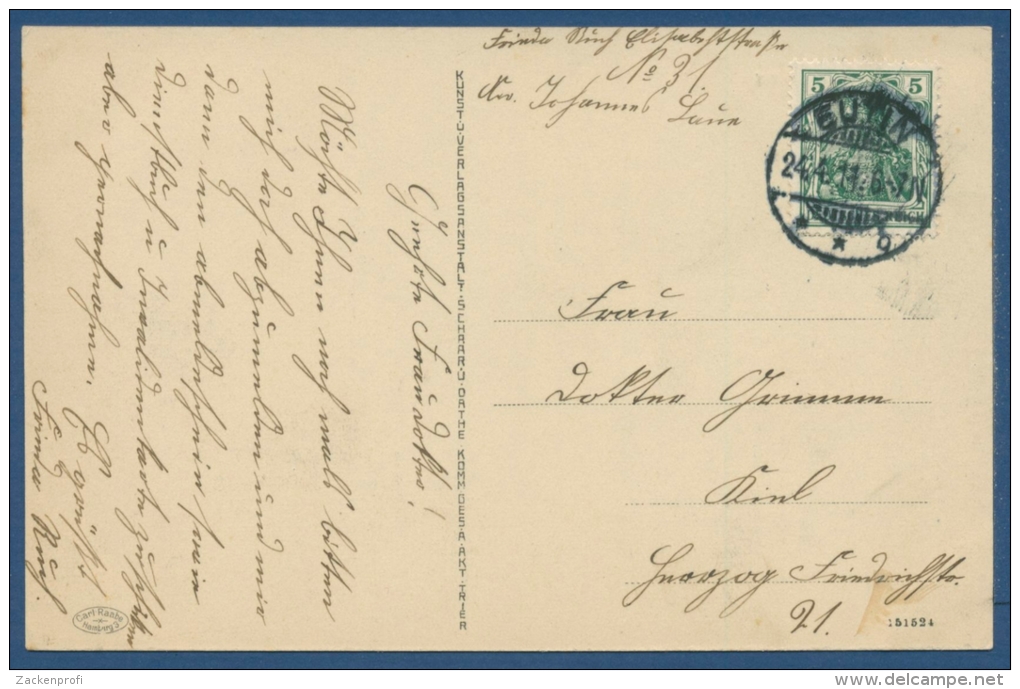 Frieda Ruch Elisabethstraße
No 31
Adr. Johannes Laue
5 5
EUTIN
24.4.11. 6-7N.
* * g
Frau
Dokter Grimme
Kiel
Herzog Friedrichstr.
21.
151524
KUNST-U-VERLAGSANSTALT-SCHAAR-U-DATHE KOMM.GES.A.AKT.TRIER
Geehrte Frau Doktor!
Möchte Ihnen noch mals bitten
mich doch abzumelden und mir
dann den abmeldeschein sein
Dienstbuch u Invalidenkarte zuschicken
aber per nachnahme.
Es grüßt
Frieda Ruch.
Carl Raabe
Hamburg 3
Zackenprofi
delcampe.net